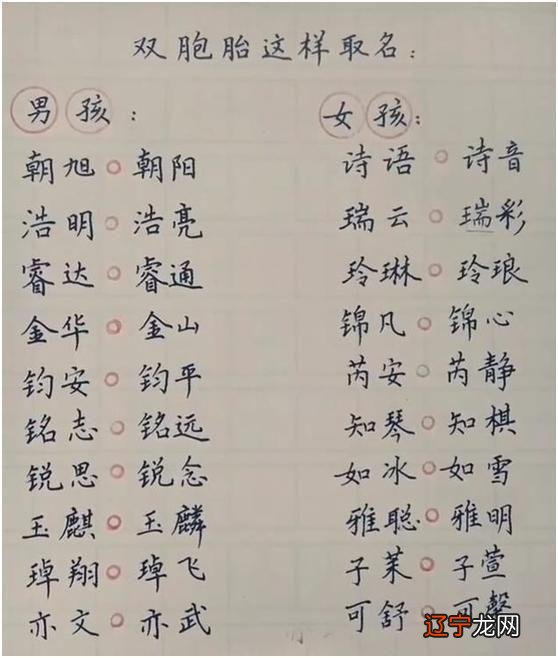 双胞胎这样取名：
男孩： 女孩：
朝旭 朝阳 诗语 诗音
浩明 浩亮 瑞云 瑞彩
睿达 睿通 玲琳 玲琅
金华 金山 锦凡 锦心
钧安 钧平 芮安 芮静
铭志 铭远 知琴 知棋
锐思 锐念 如冰 如雪
玉麒 玉麟 雅聪 雅明
琸翔 琸飞 子茉 子萱
亦文 亦武 可舒 可馨
辽宁龙网